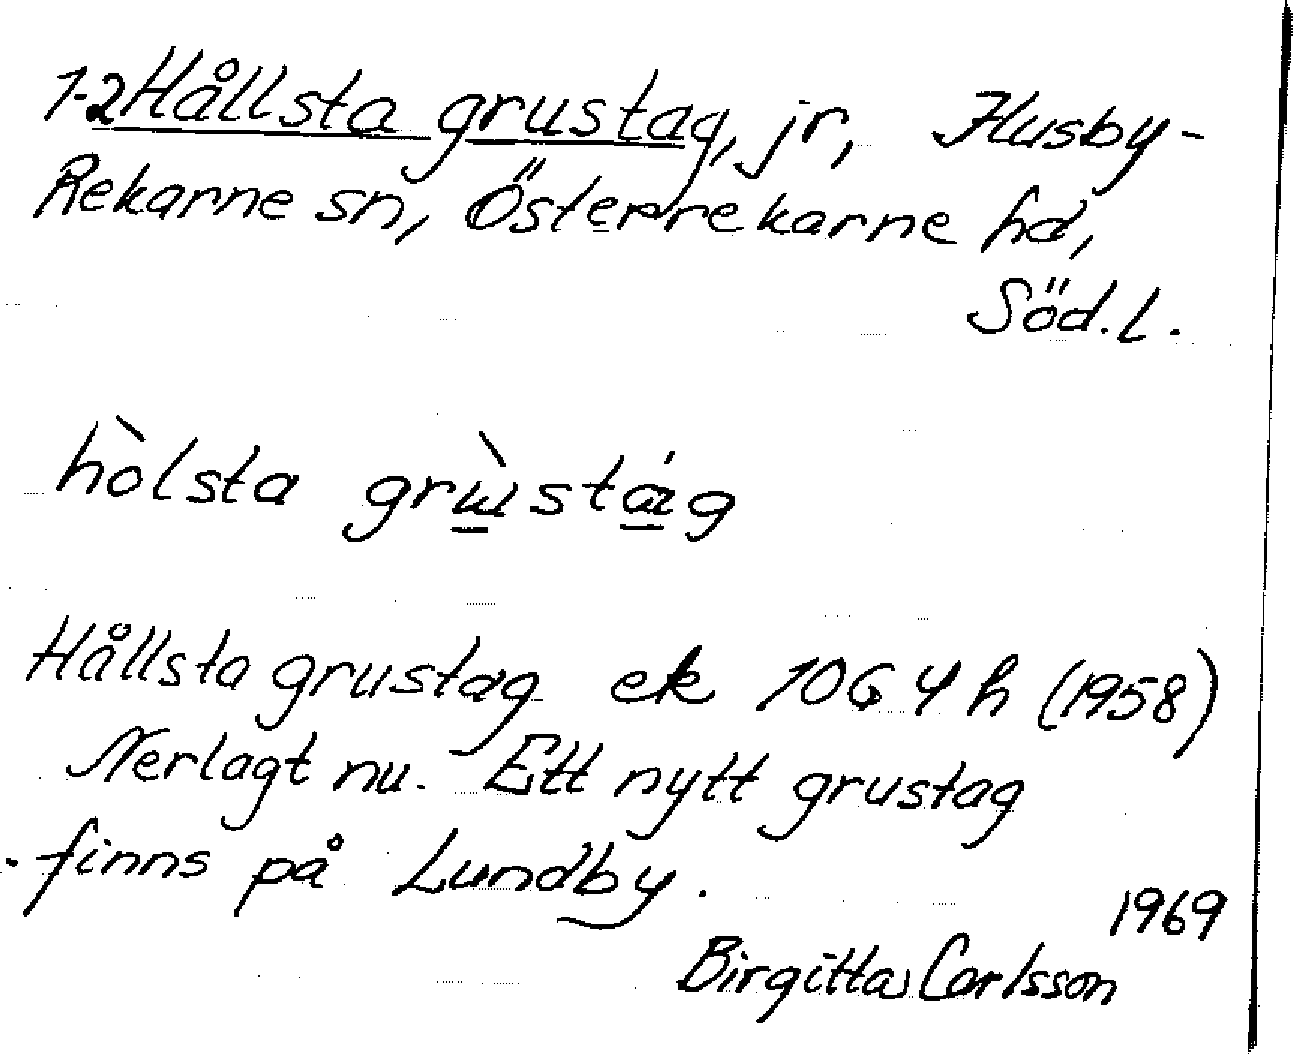 1-2 Hållsta grustag, jr, Husby-
Rekarne sn, Österrekarne hd,
Söd. l.
hòlsta grùstág
Hållsta grustag ek 10G 4h (1958)
Nerlagt nu. Ett nytt grustag
finns på Lundby.
1969
Birgitta Carlsson